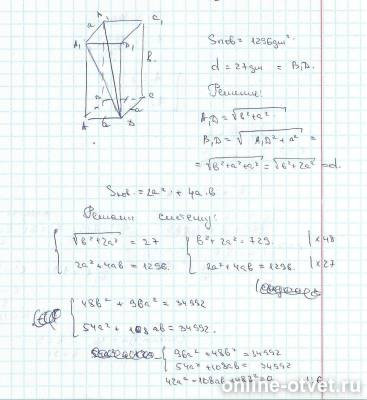 a
C₁
A₁
D₁
b
A
a
D
C
Sпов = 1296 дм²
d = 27 дм = B₁D.
Решение:
A₁D = √b²+a²
B₁D = √A₁D²+a² =
= √b²+a²+a² = √b²+2a² = d.
Sпов. = 2a² + 4ab
Решаем систему:
{ √b²+2a² = 27 { b²+2a² = 729. | ×48
2a²+4ab = 1296. 2a²+4ab = 1296. | ×27
{ 48b² + 96a² = 34992
54a² + 108ab = 34992.
{ 96a²+48b² = 34992
54a²+108ab = 34992
42a²-108ab+48b²=0
online-otvet.ru